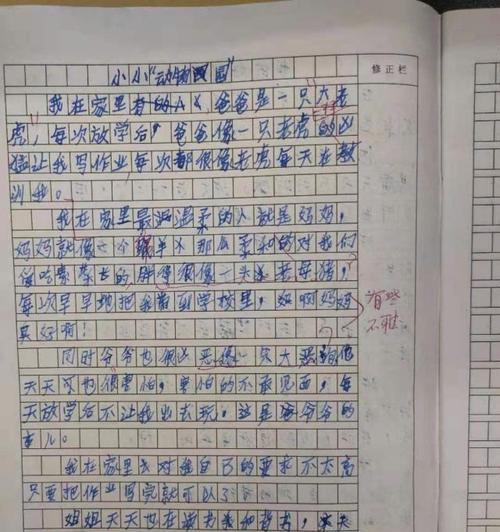 修正栏
小小“动物国国”
我在家里有的人 爸爸是一只大老
虎，每次放学后，爸爸像一只老虎的凶
猛让我写作业，每次都很像老虎每天在教
训我。
我在家里最温柔的人就是妈妈，
妈妈就像一个 羊 那么柔和的对我们
的 胖得很像一头老母猪，
每次早早地把我带到学校里，妈啊妈妈
真好啊！
有些
不雅
同时爷爷也很凶恶得一只大恶狗他
天天可也很害怕，害怕的不敢见面，每
天放学后不让我出去玩，这是爷爷的
事儿。
我在家里我对继自己的要求不太高
只要把作业写完就可以了
姐姐天天也在读书我和老书，